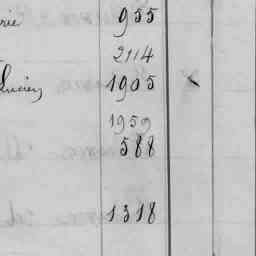 rie 955
2114
Lucien 1905
1959
588
1318